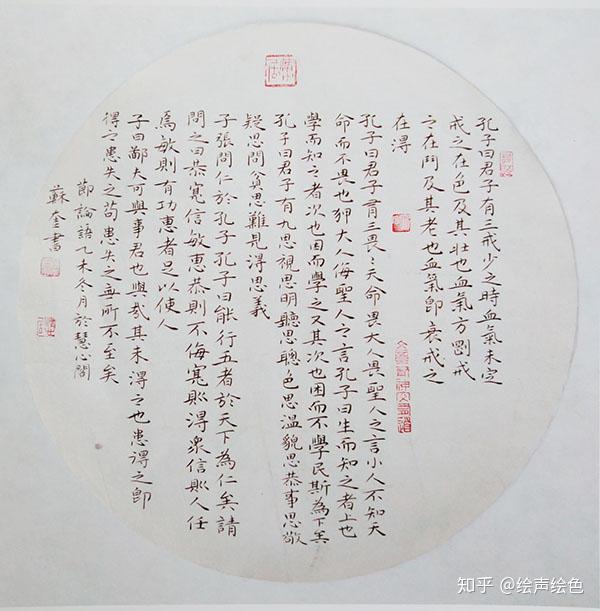 孔子曰君子有三戒少之時血氣未定
戒之在色及其壯也血氣方剛戒
之在鬥及其老也血氣即衰戒之
在得
孔子曰君子有三畏〻天命畏大人畏聖人之言小人不知天
命而不畏也狎大人侮聖人之言孔子曰生而知之者上也
學而知之者次也困而學之又其次也困而不學民斯為下矣
孔子曰君子有九思視思明聽思聰色思溫貌思恭事思敬
疑思問忿思難見得思義
子張問仁於孔子孔子曰能行五者於天下為仁矣請
問之曰恭寬信敏惠恭則不侮寬則得眾信則人任
焉敏則有功惠者足以使人
子曰鄙夫可與事君也與哉其未得之也患得之即
得之患失之苟患失之無所不至矣
節論語乙未冬月於慧心閣
蘇奎書
知乎 @绘声绘色